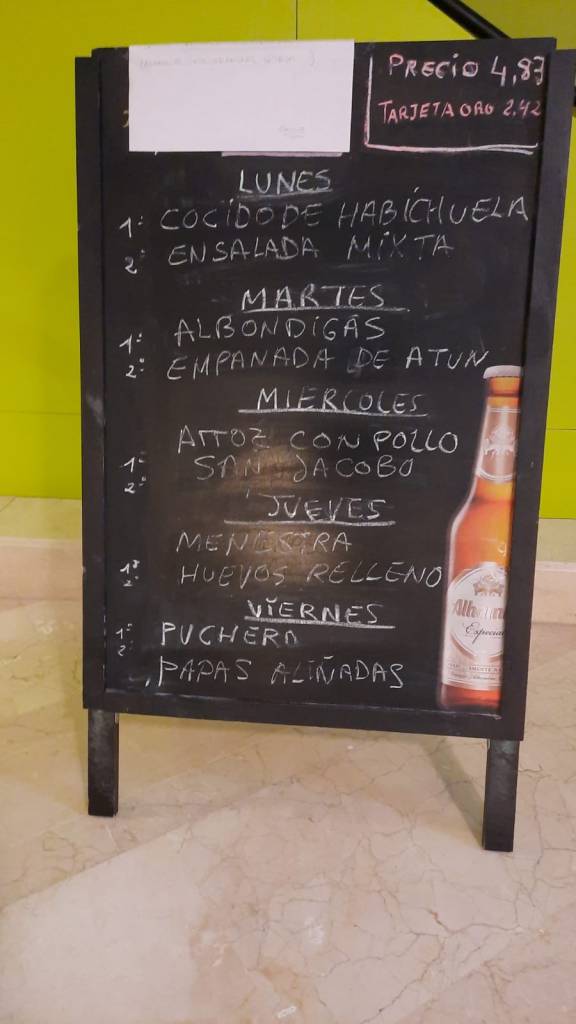 PRECIO 4,87
TARJETA ORO 2,42
LUNES
1º COCIDO DE HABICHUELA
2º ENSALADA MIXTA
MARTES
1º ALBONDIGAS
2º EMPANADA DE ATUN
MIERCOLES
ARROZ CON POLLO
1º SAN JACOBO
2º
JUEVES
MENESTRA
1º
2º HUEVOS RELLENO
VIERNES
1º PUCHERO
2º
PAPAS ALIÑADAS
Especial